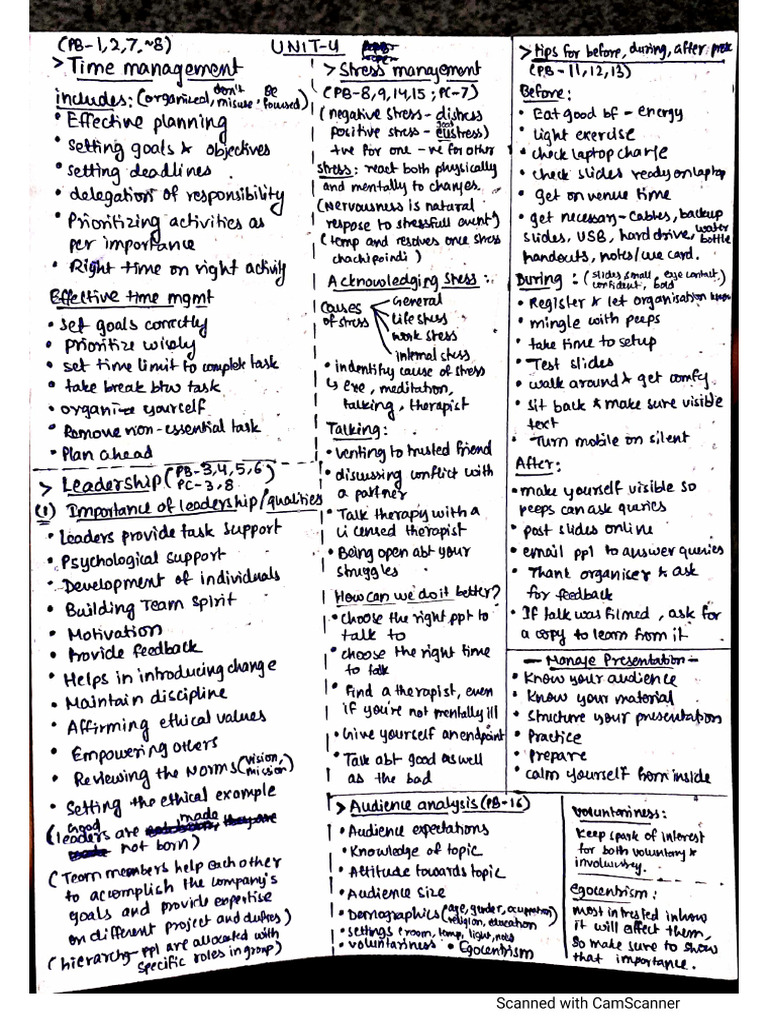 (PB-1,2,7,~8)
UNIT-4
> Time management
includes: (organized, don't misuse, Be focused)
• Effective planning
• setting goals & objectives
• setting deadlines.
• delegation of responsibility
• Prioritizing activities as
per importance
• Right time on right activity
Effective time mgmt
• set goals correctly
• prioritize wisely
• set time limit to complete task
• take break btw task
• organize yourself
• Remove non-essential task
• Plan ahead
> Leadership (PB-3,4,5,6)
PC-3,8
(1) Importance of leadership/qualities
• Leaders provide task support
• Psychological support
• Development of individuals
• Building Team Spirit
• Motivation
• Provide feedback
• Helps in introducing change
• Maintain discipline
• Affirming ethical values
• Empowering others
• Reviewing the Norms (vision, mission)
• Setting the ethical example
(good leaders are made
not born)
(Team members help each other
to accomplish the company's
goals and provide expertise
on different project and duties)
(hierarchy- ppl are allocated with
specific roles in group)
> Stress management
(PB-8,9,14,15 ; PC-7)
(negative stress - distress
positive stress - good eustress)
+ve for one - -ve for other
stress: react both physically
and mentally to changes.
(Nervousness is natural
respose to stressfull event)
(temp and resolves once stress
chachipoindi)
Acknowledging stress:
Causes of stress
General
Life stress
work stress
internal stess
• indentify cause of stress
↳ exe, meditation,
talking, therapist
Talking:
• venting to trusted friend
• discussing conflict with
a partner
• Talk therapy with a
licensed therapist
• Being open abt your
struggles
How can we do it better?
• choose the right ppl to
talk to
• choose the right time
to talk
• find a therapist, even
if you're not mentally ill
• Give yourself an endpoint
• Talk abt good as well
as the bad
> Audience analysis (PB-16)
• Audience expectations
• Knowledge of topic
• Attitude towards topic
• Audience size
• Demographics (age, gender, occupation, religion, education)
• settings (room, temp, light,
• voluntariness • Egocentrism
> tips for before, during, after
(PB-11,12,13)
Before:
• Eat good bf - energy
• light exercise
• check laptop charge
• check slides ready on laptop
• get on venue time
• get necessary - cables, backup
slides, USB, hard drive, water bottle
handouts, notes/cue card.
During: (slides small, eye contact, confident, bold)
• Register & let organisation know
• mingle with peeps
• take time to setup
• Test slides
• walk around & get comfy
• sit back & make sure visible
text
• Turn mobile on silent
After:
• make yourself visible so
peeps can ask queries
• post slides online
• email ppl to answer queries
• Thank organiser & ask
for feedback
• If talk was filmed, ask for
a copy to learn from it
- Manage Presentation -
• Know your audience
• Know your material
• structure your presentation
• Practice
• Prepare
• calm yourself from inside
Voluntariness:
Keep spark of interest
for both voluntary &
involuntary.
Egocentrism:
most intrested in how
it will effect them,
so make sure to show
that importance.
Scanned with CamScanner